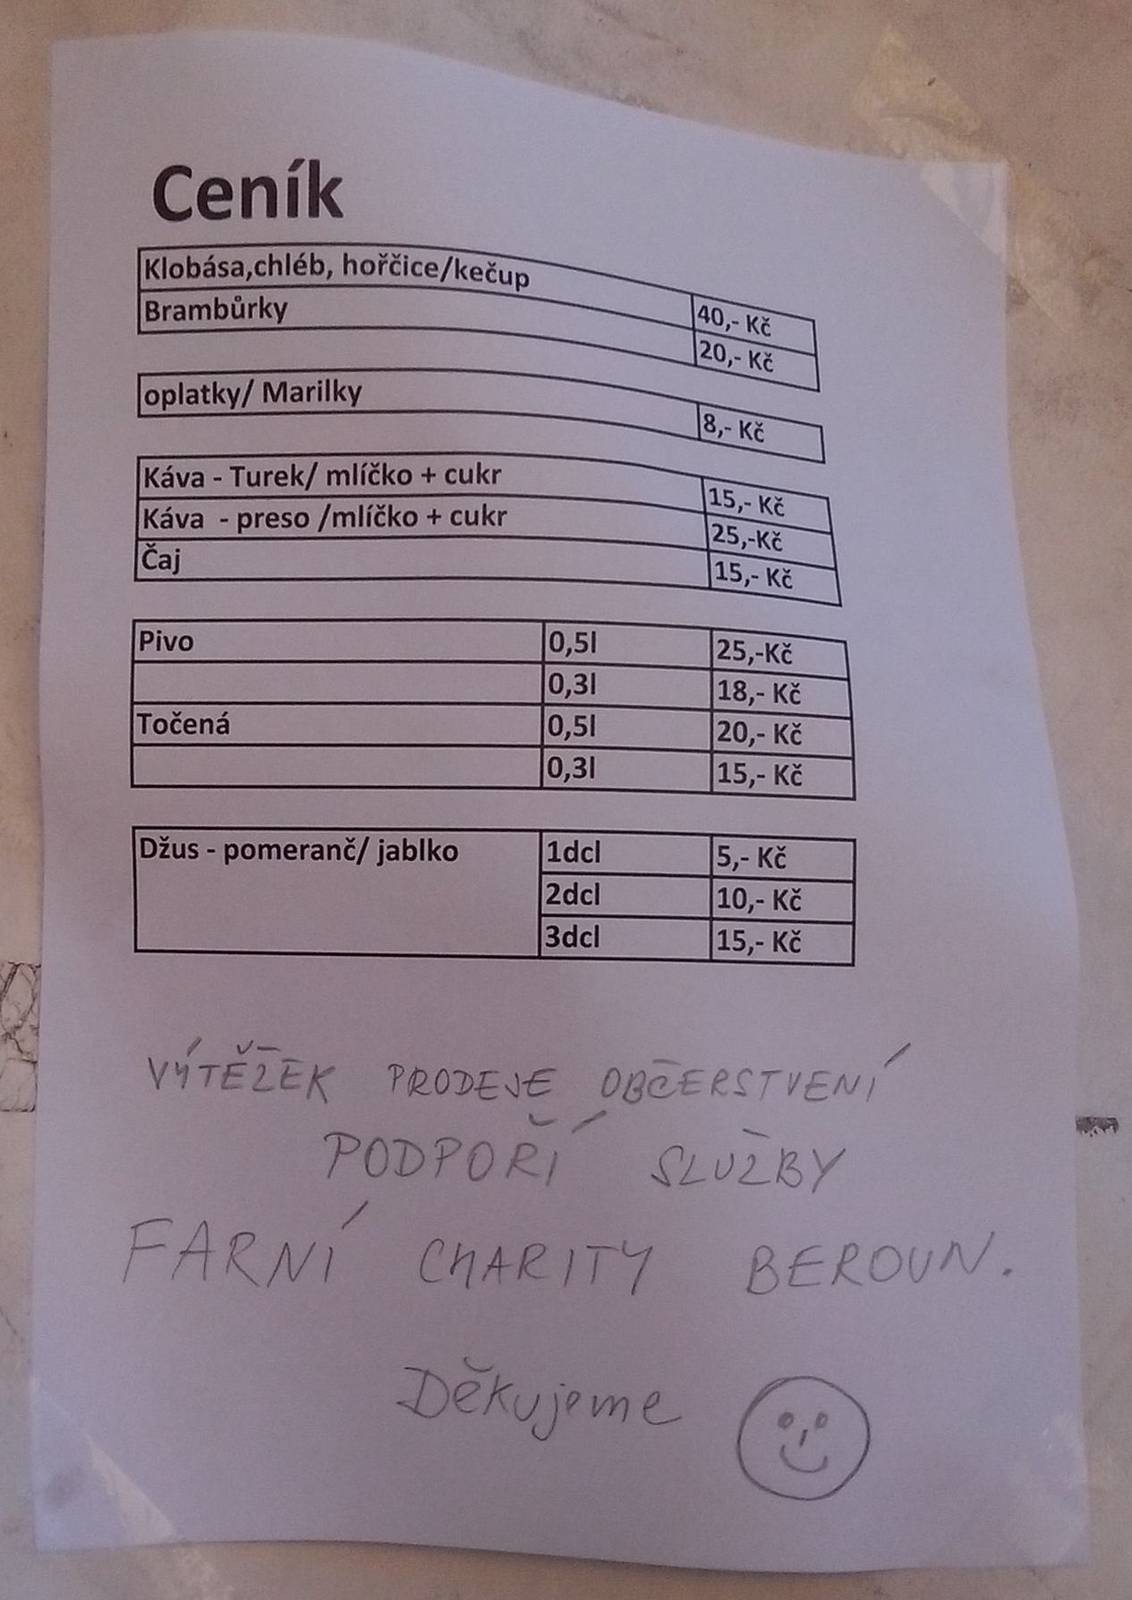 Ceník
Klobása,chléb, hořčice/kečup 40,- Kč
Brambůrky 20,- Kč
oplatky/ Marilky 8,- Kč
Káva - Turek/ mlíčko + cukr 15,- Kč
Káva - preso /mlíčko + cukr 25,-Kč
Čaj 15,- Kč
Pivo 0,5l 25,-Kč
0,3l 18,- Kč
Točená 0,5l 20,- Kč
0,3l 15,- Kč
Džus - pomeranč/ jablko 1dcl 5,- Kč
2dcl 10,- Kč
3dcl 15,- Kč
VÝTĚŽEK PRODEJE OBČERSTVENÍ
PODPOŘÍ SLUŽBY
FARNÍ CHARITY BEROUN.
Děkujeme